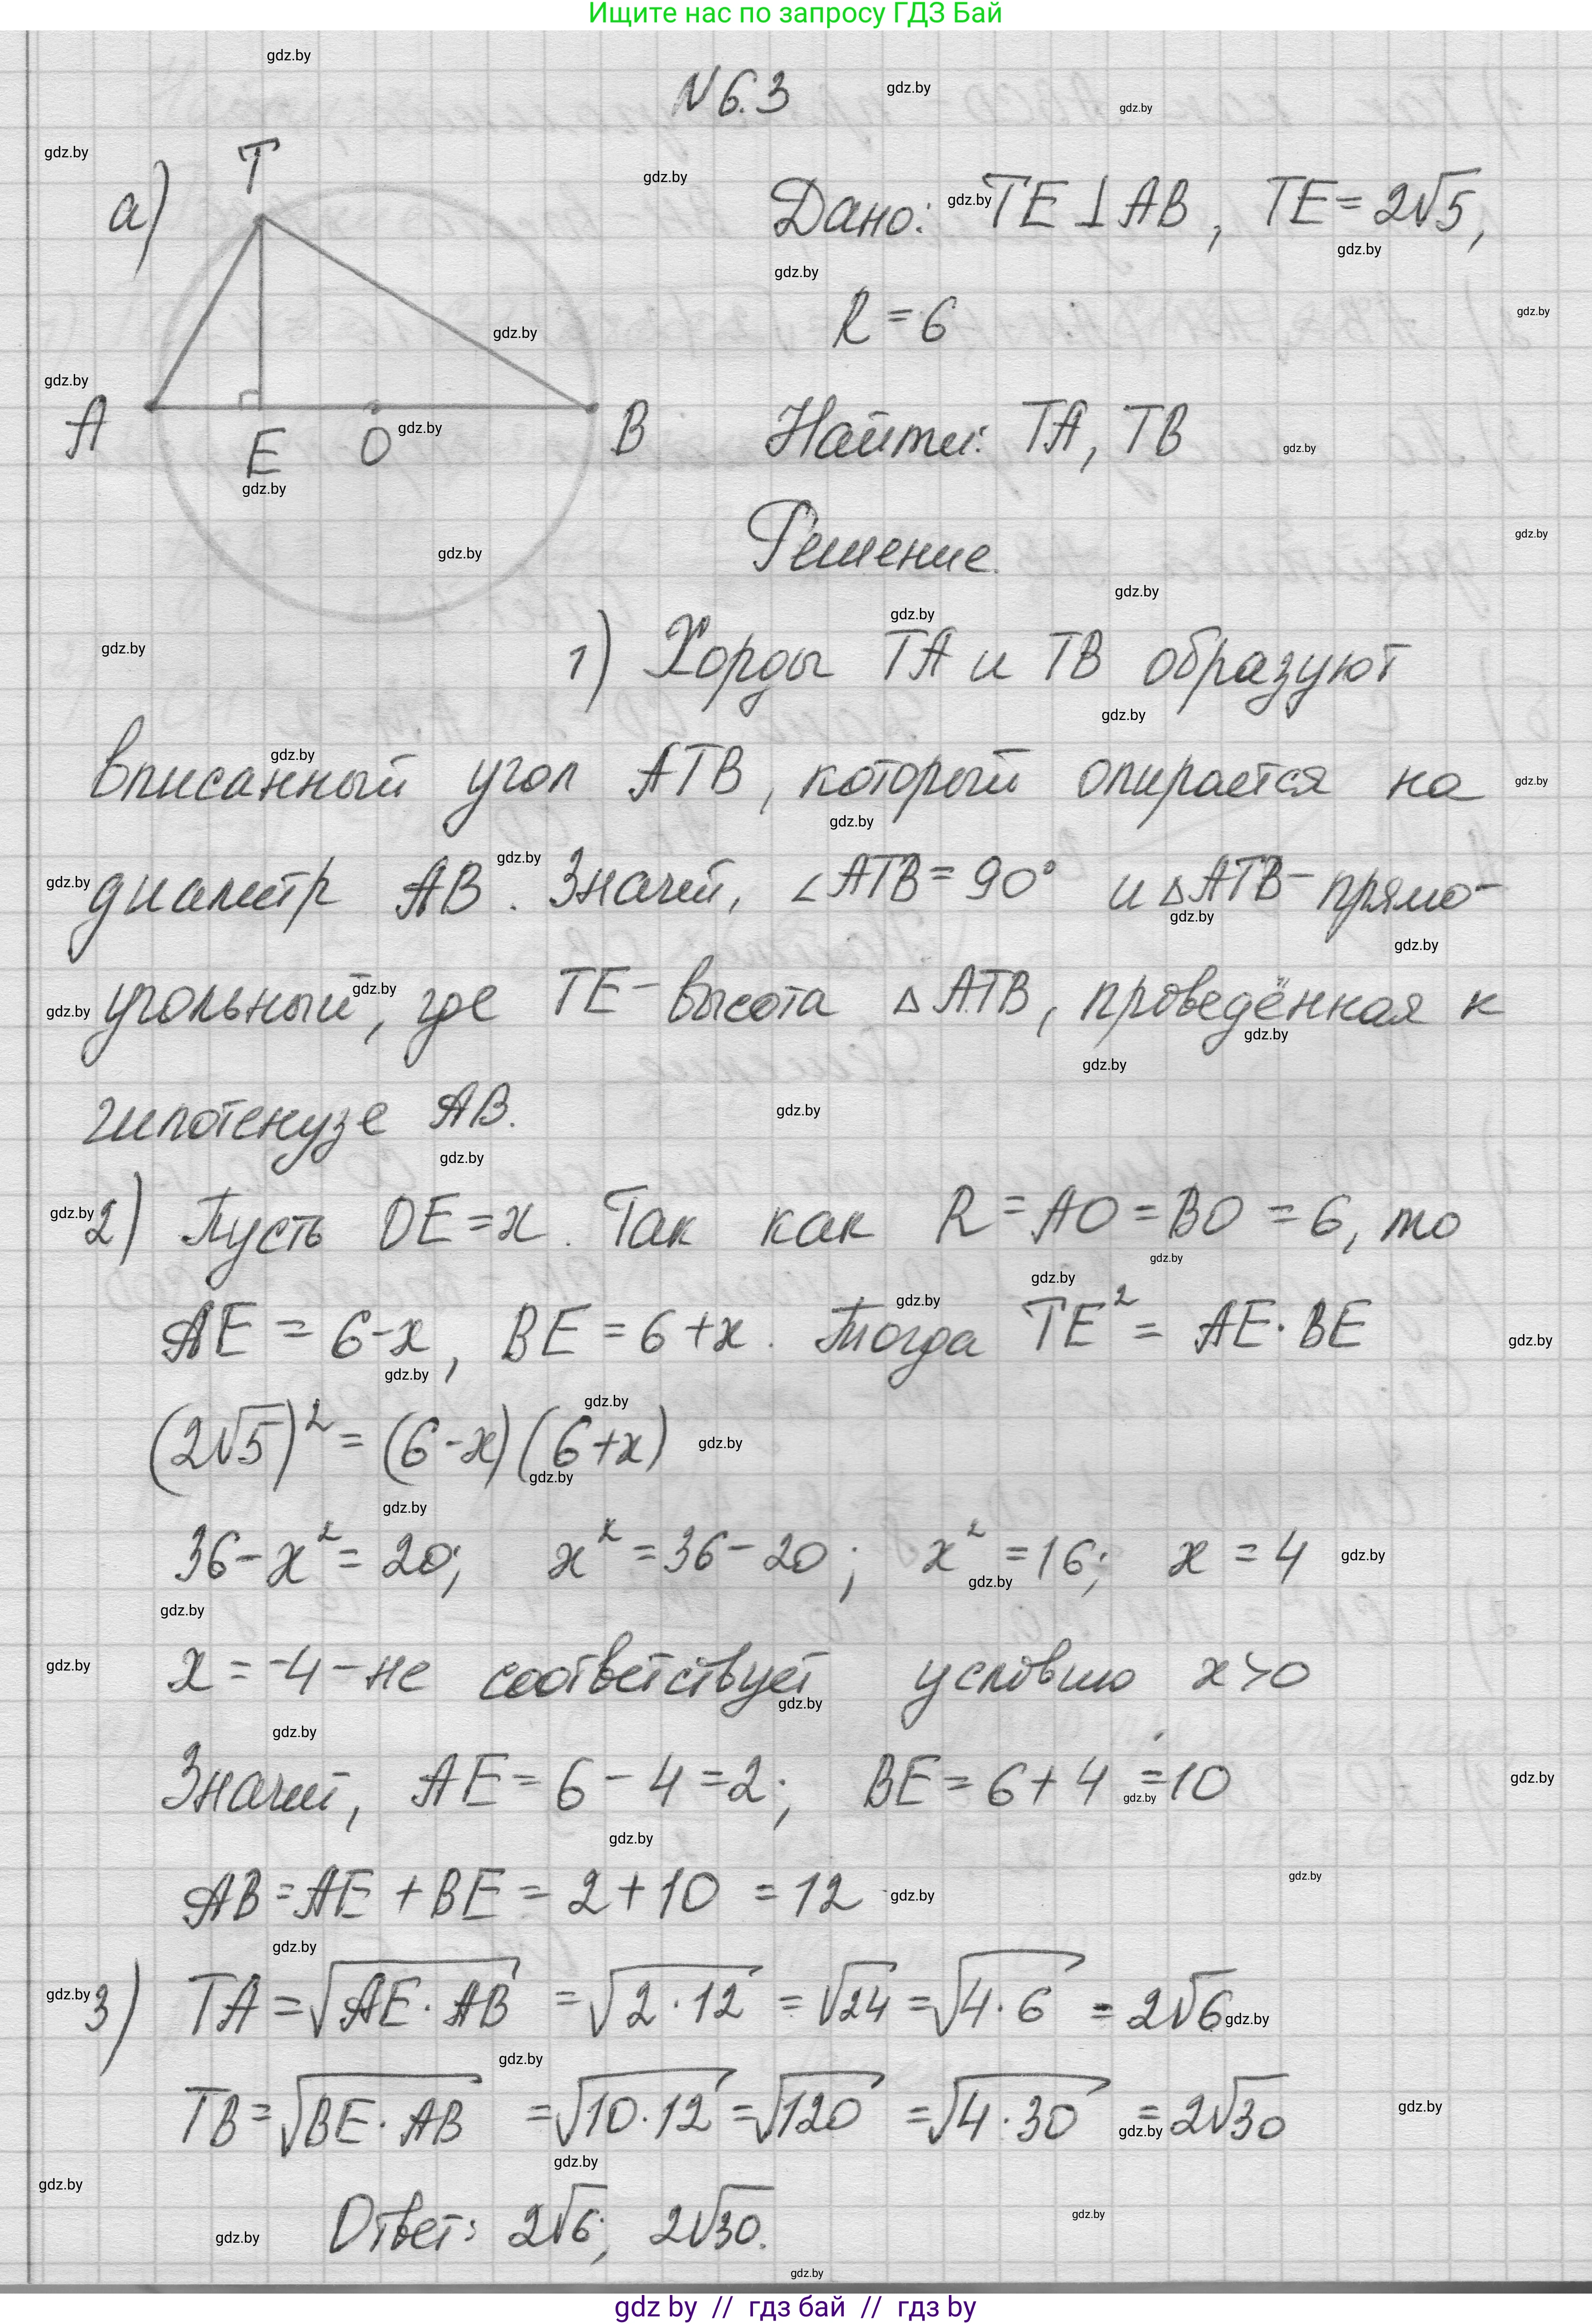 Ищите нас по запросу ГДЗ Бай
N 6.3
а)
T
A
E
O
B
Дано: TE ⊥ AB, TE = 2√5,
R = 6
Найти: TA, TB
Решение.
1) Хорды TA и TB образуют
вписанный угол ATB, который опирается на
диаметр AB. Значит, ∠ATB = 90° и △ATB - прямо-
угольный, где TE - высота △ATB, проведённая к
гипотенузе AB.
2) Пусть OE = x. Так как R = AO = BO = 6, то
AE = 6-x, BE = 6+x. Тогда TE² = AE · BE
(2√5)² = (6-x)(6+x)
36 - x² = 20; x² = 36 - 20; x² = 16; x = 4
x = -4 - не соответствует условию x > 0
Значит, AE = 6 - 4 = 2; BE = 6 + 4 = 10
AB = AE + BE = 2 + 10 = 12
3) TA = √(AE · AB) = √(2 · 12) = √24 = √(4 · 6) = 2√6
TB = √(BE · AB) = √(10 · 12) = √120 = √(4 · 30) = 2√30
Ответ: 2√6; 2√30.
gdz by // гдз бай // гдз by